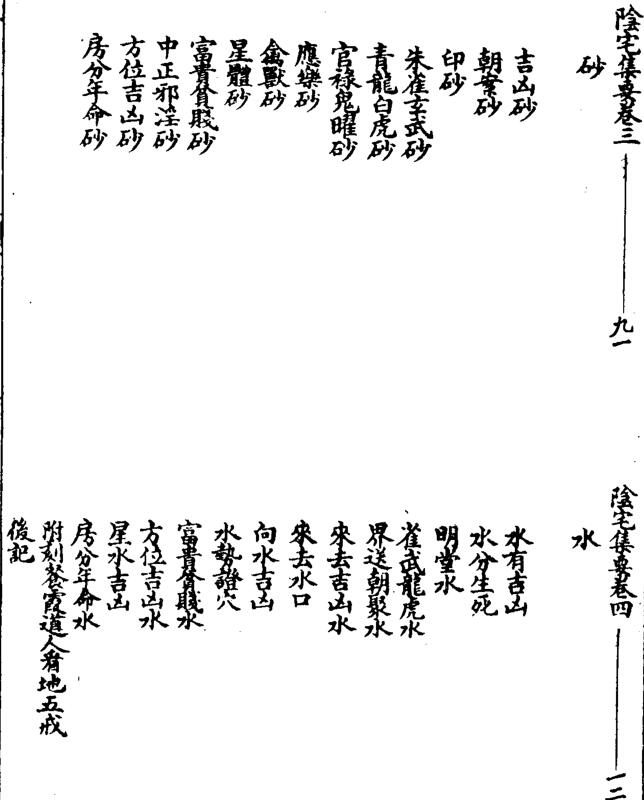 陰宅集要卷三——九一
砂
吉凶砂
朝案砂
印砂
朱雀玄武砂
青龍白虎砂
官祿鬼曜砂
應樂砂
禽獸砂
星體砂
富貴貧賤砂
中正邪淫砂
方位吉凶砂
房分年命砂
陰宅集要卷四——一二一
水
水有吉凶
水分生死
明堂水
雀武龍虎水
界送朝聚水
來去吉凶水
來去水口
向水吉凶
水勢證穴
富貴貧賤水
方位吉凶水
星水吉凶
房分年命水
附刻餐霞道人看地五戒
後記